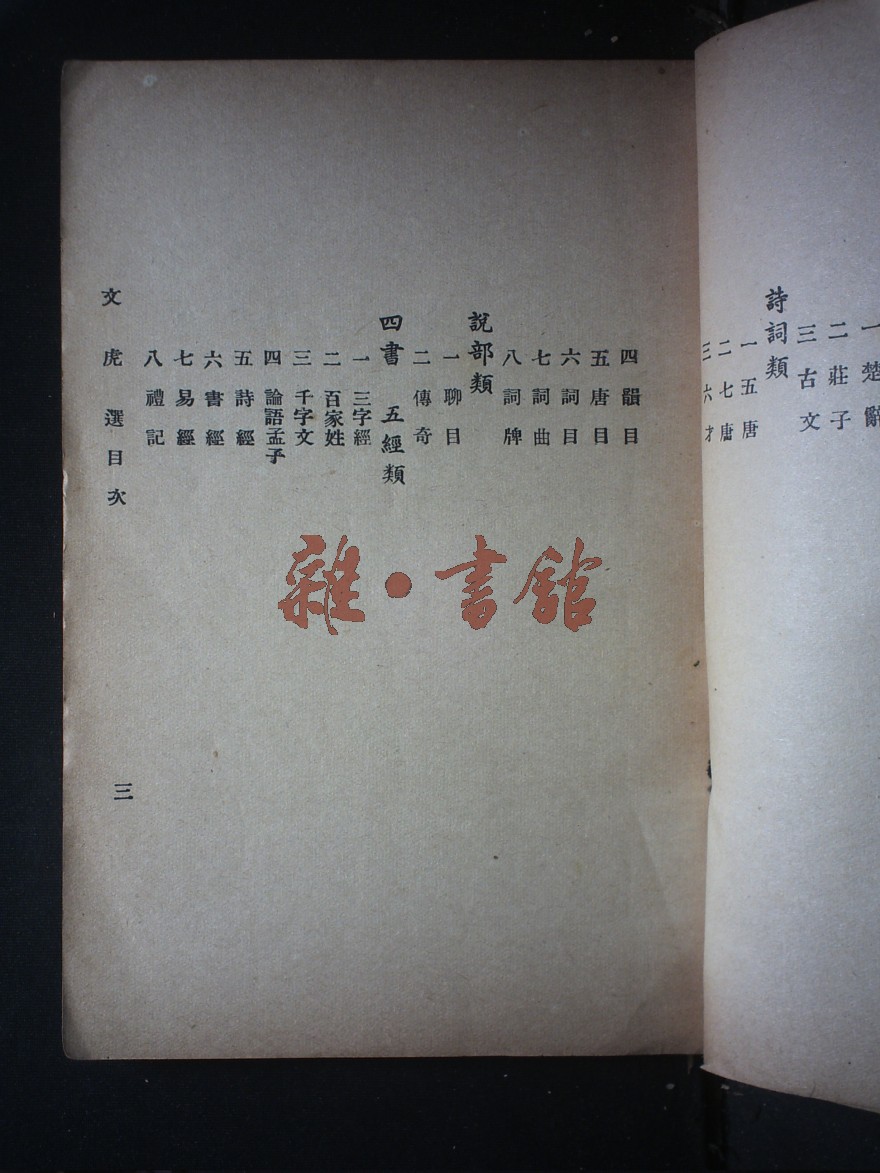 一 楚辭
二 莊子
三 古文
詩詞類
一 五唐
二 七唐
三 六才
四 韻目
五 唐目
六 詞目
七 詞曲
八 詞牌
說部類
一 聊目
二 傳奇
四書 五經類
一 三字經
二 百家姓
三 千字文
四 論語孟子
五 詩經
六 書經
七 易經
八 禮記
文虎選目次
三
雜·書館